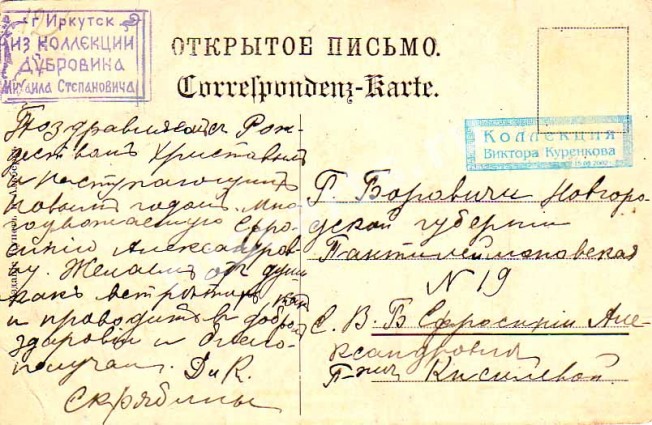 г Иркутск
ИЗ КОЛЛЕКЦИИ
ДУБРОВИКА
Михаила Степановича
ОТКРЫТОЕ ПИСЬМО.
Correspondenz-Karte.
КОЛЛЕКЦИЯ
Виктора Куренкова
Поздравляемъ съ Рож-
дествомъ Христовымъ
и наступающимъ
новымъ годомъ. Мно-
гоуважаемую Ефро-
синію Александров-
ну. Желаемъ отъ души
какъ встрѣтить, такъ
и проводить въ добромъ
здоровіи и благо-
получіи. Д и К.
Скрябины
Г. Боровичи Новгоро-
дской губерніи
Пантилеймоновская
N 19
Е. В. Б Ефросиніи Але-
ксандровнѣ
Г-жѣ Киселевой.